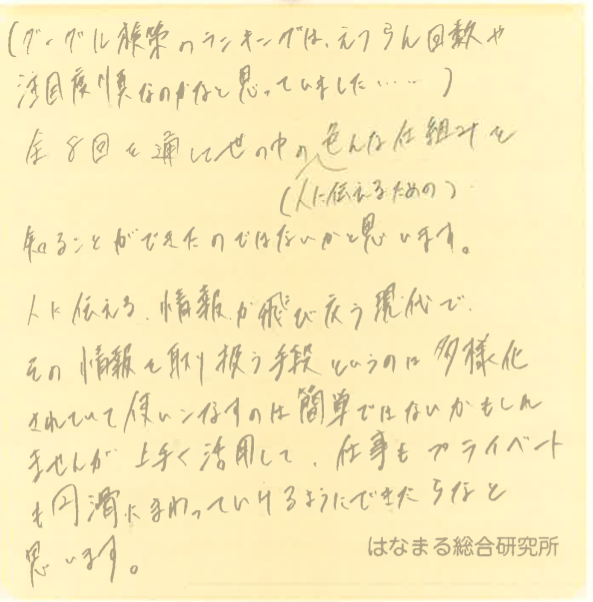 (グーグル検索のランキングは、えつらん回数や
注目度順なのかなと思っていました……)
全8回を通して世の中の色んな仕組みを
(人に伝えるための)
知ることができたのではないかと思います。
人に伝える、情報が飛び交う現代で、
その情報を取り扱う手段というのは多様化
されていて使いこなすのは簡単ではないかもしれ
ませんが上手く活用して、仕事もプライベート
も円滑にまわっていけるようにできたらなと
思います。
はなまる総合研究所